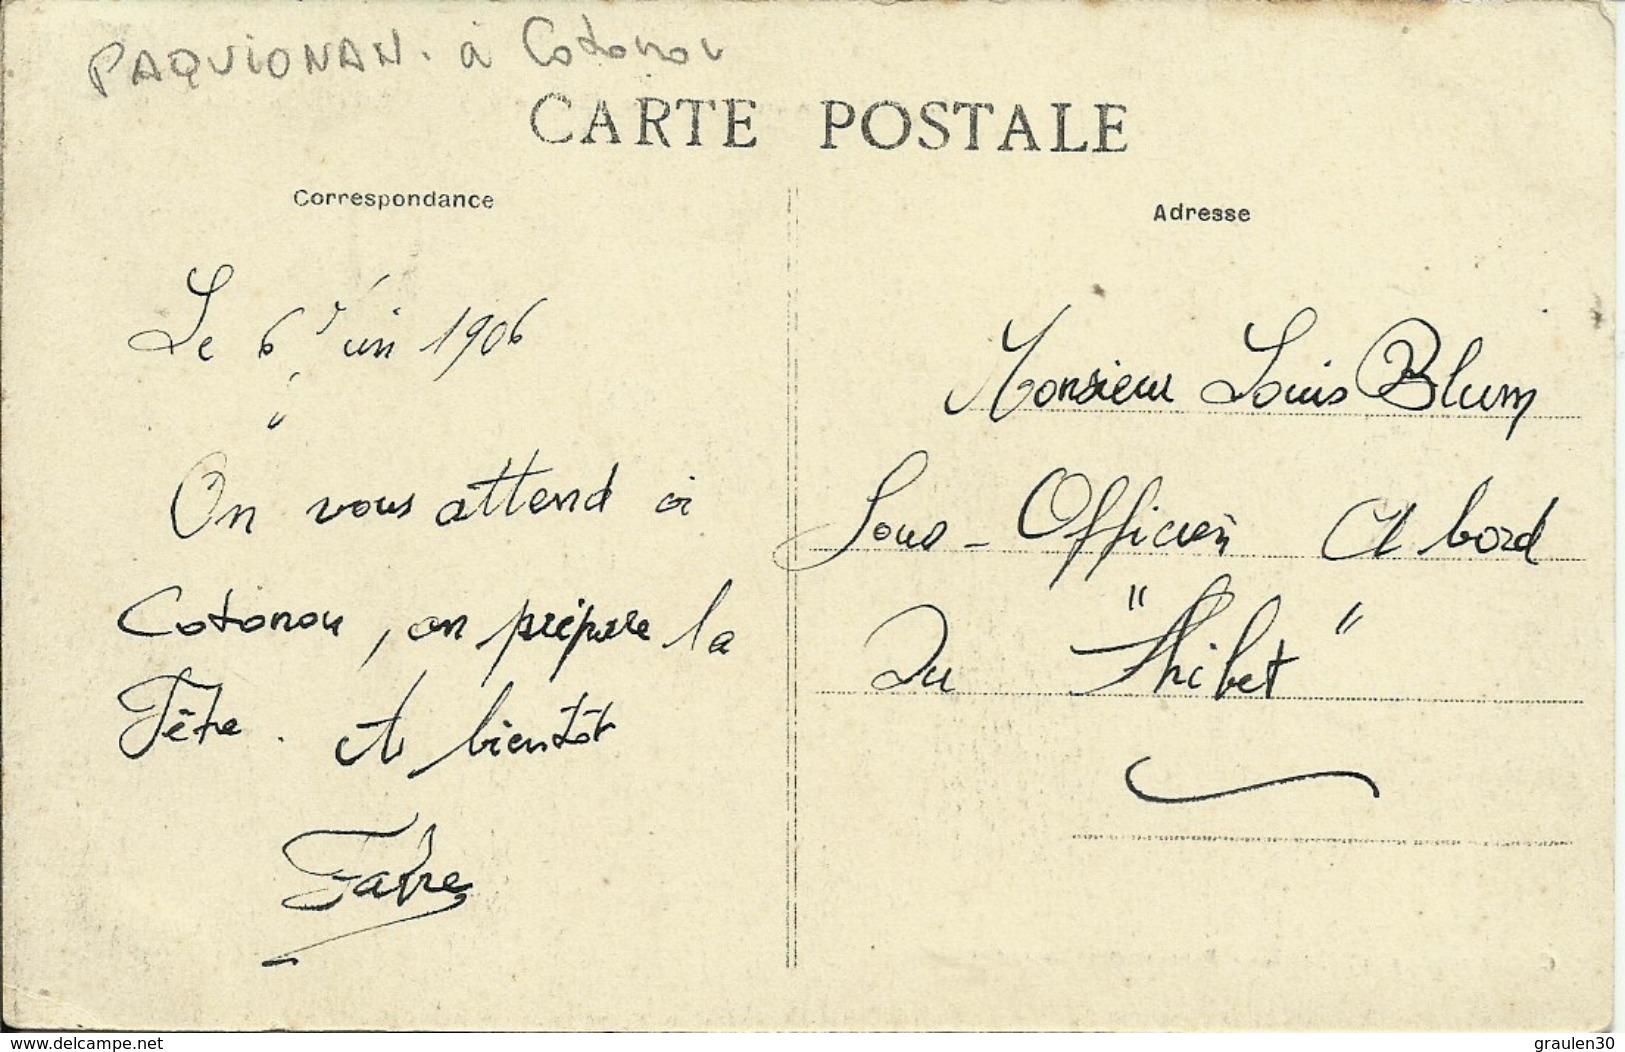 PAQUIONAN. à Cotonou
CARTE POSTALE
Correspondance
Le 6 Juin 1906
On vous attend à
Cotonou, on prépare la
Fête. A bientôt
Fabre
Adresse
Monsieur Louis Blum
Sous-Officier A bord
Du "Thibet"
www.delcampe.net
graulen30